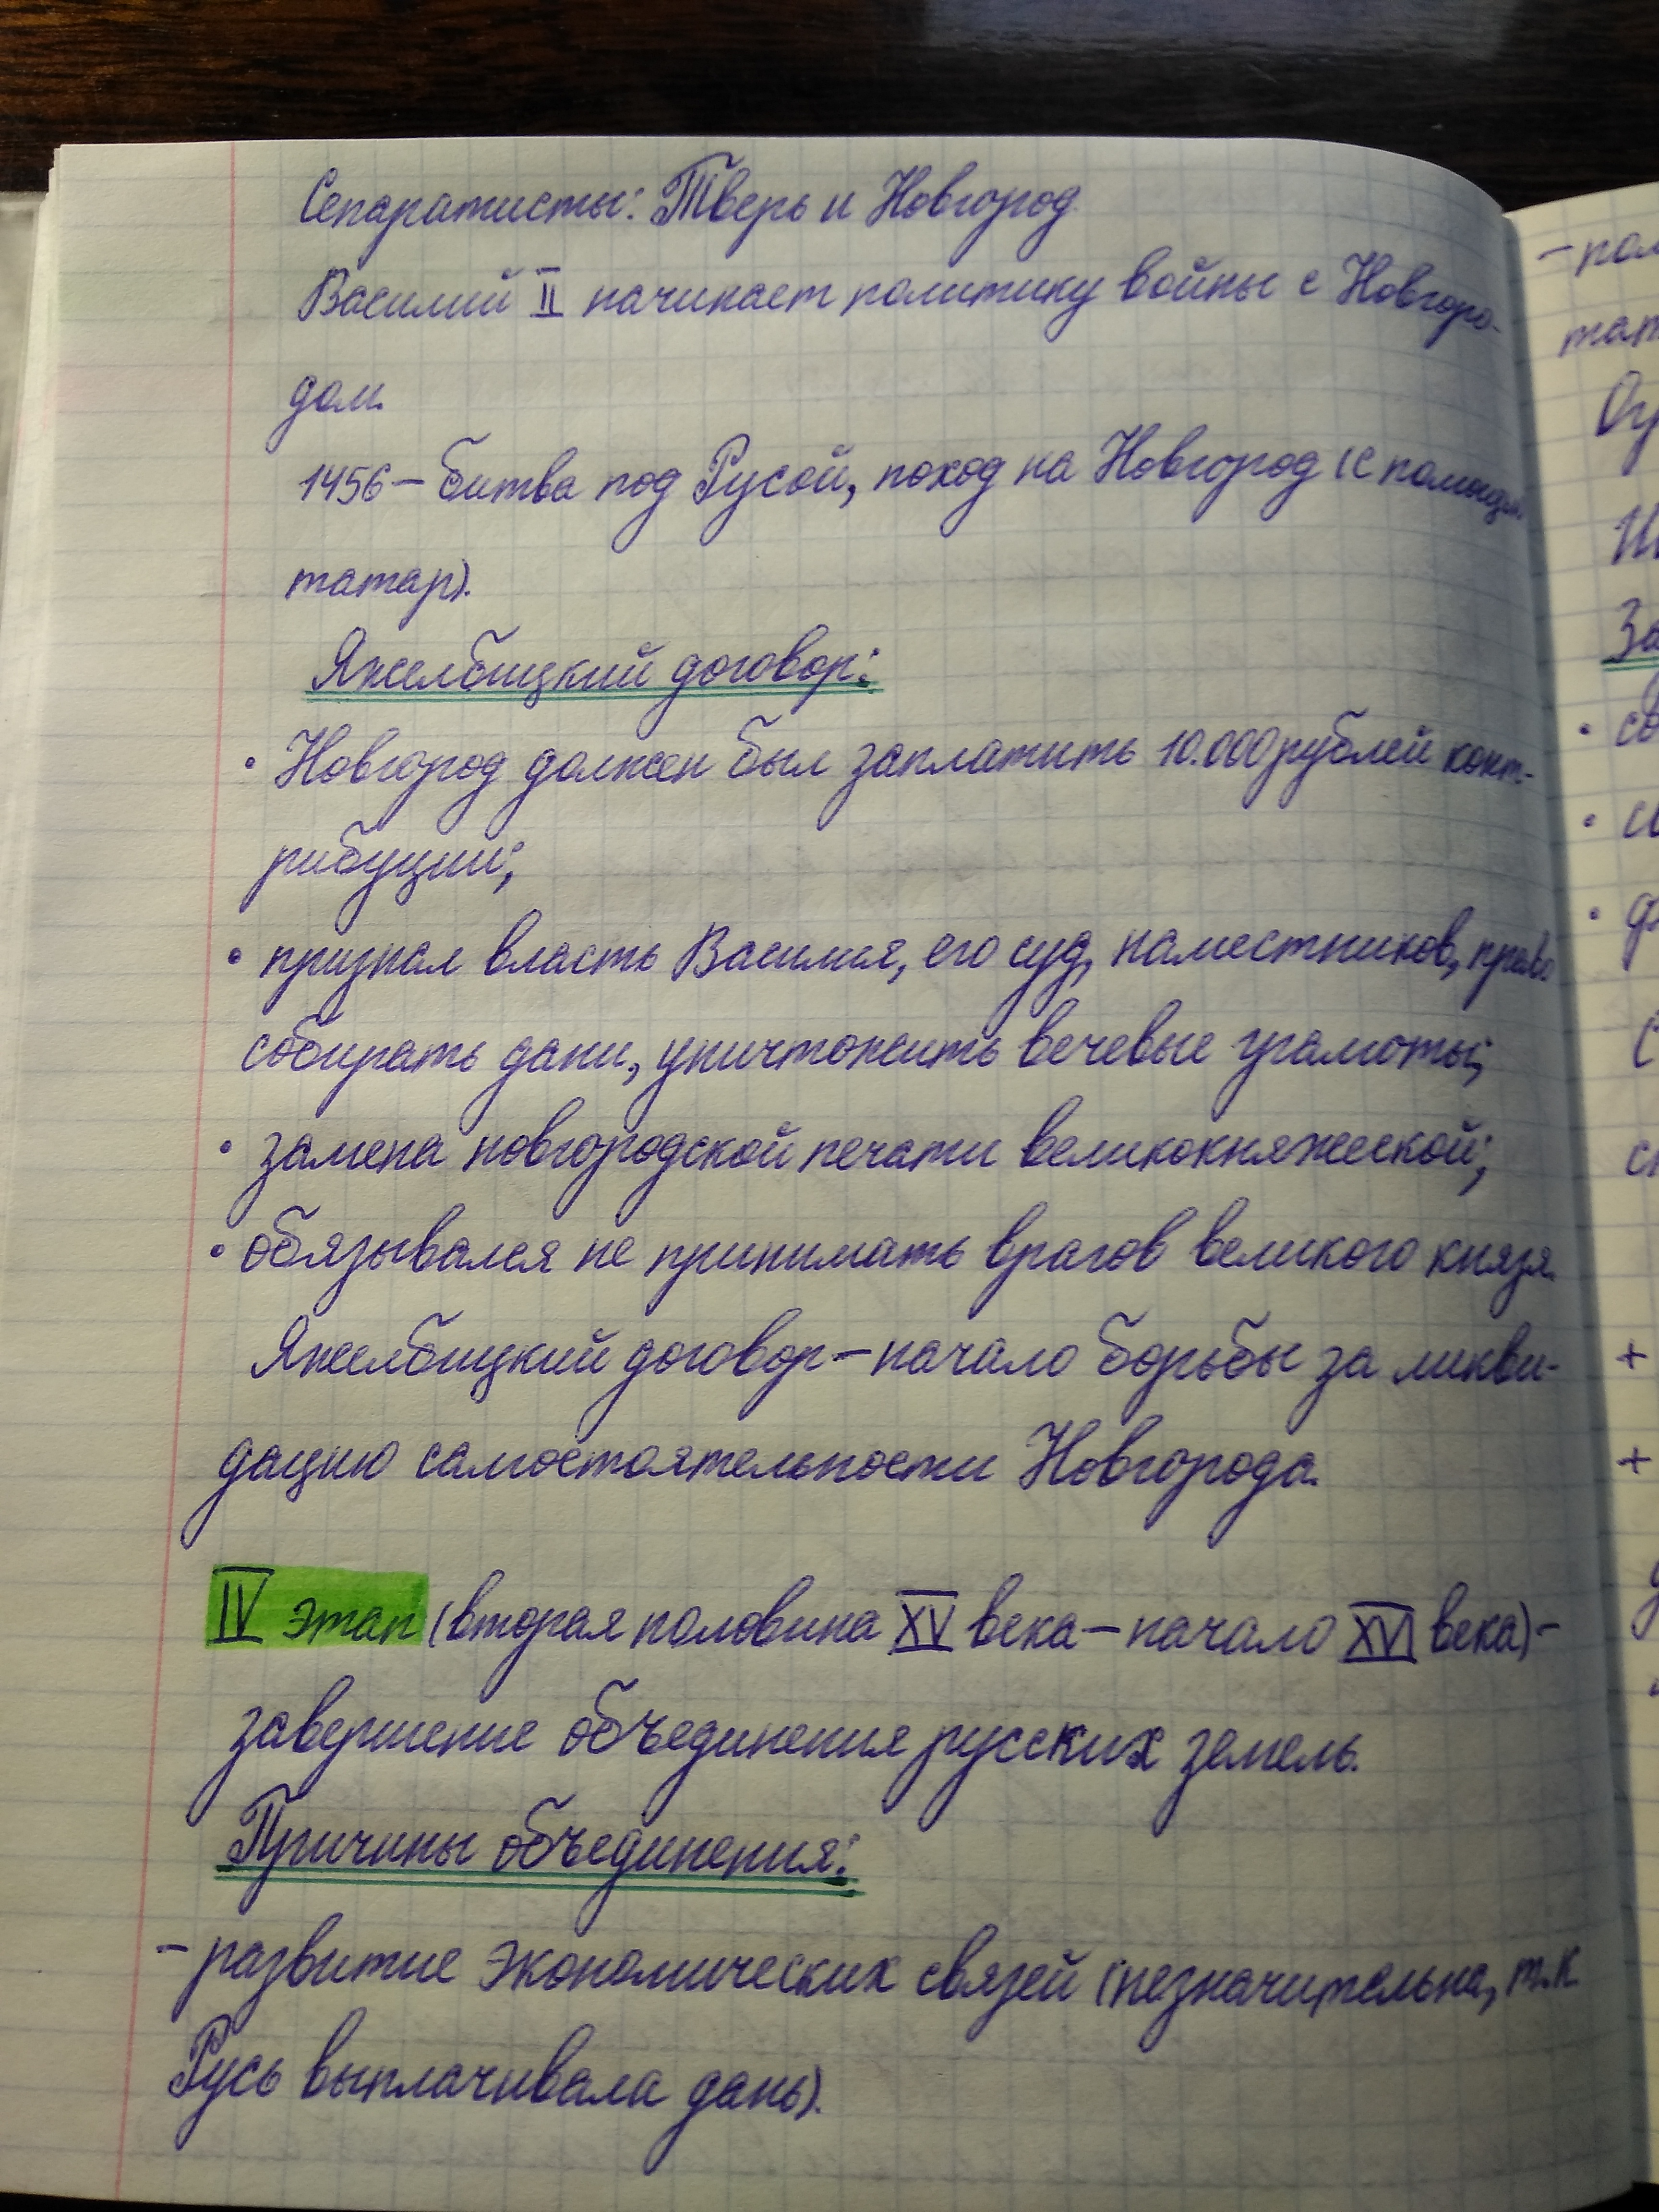 Сепаратисты: Тверь и Новгород
Василий II начинает политику войны с Новгоро-
дом.
1456 – битва под Русой, поход на Новгород (с помощью
татар).
Яжелбицкий договор:
• Новгород должен был заплатить 10.000 рублей конт-
рибуции;
• признал власть Василия, его суд, наместников, право
собирать дани, уничтожить вечевые грамоты;
• замена новгородской печати великокняжеской;
• обязывался не принимать врагов великого князя.
Яжелбицкий договор – начало борьбы за ликви-
дацию самостоятельности Новгорода.
IV этап (вторая половина XV века – начало XVI века) –
завершение объединения русских земель.
Причины объединения:
– развитие экономических связей (незначительна, т.к.
Русь выплачивала дань).